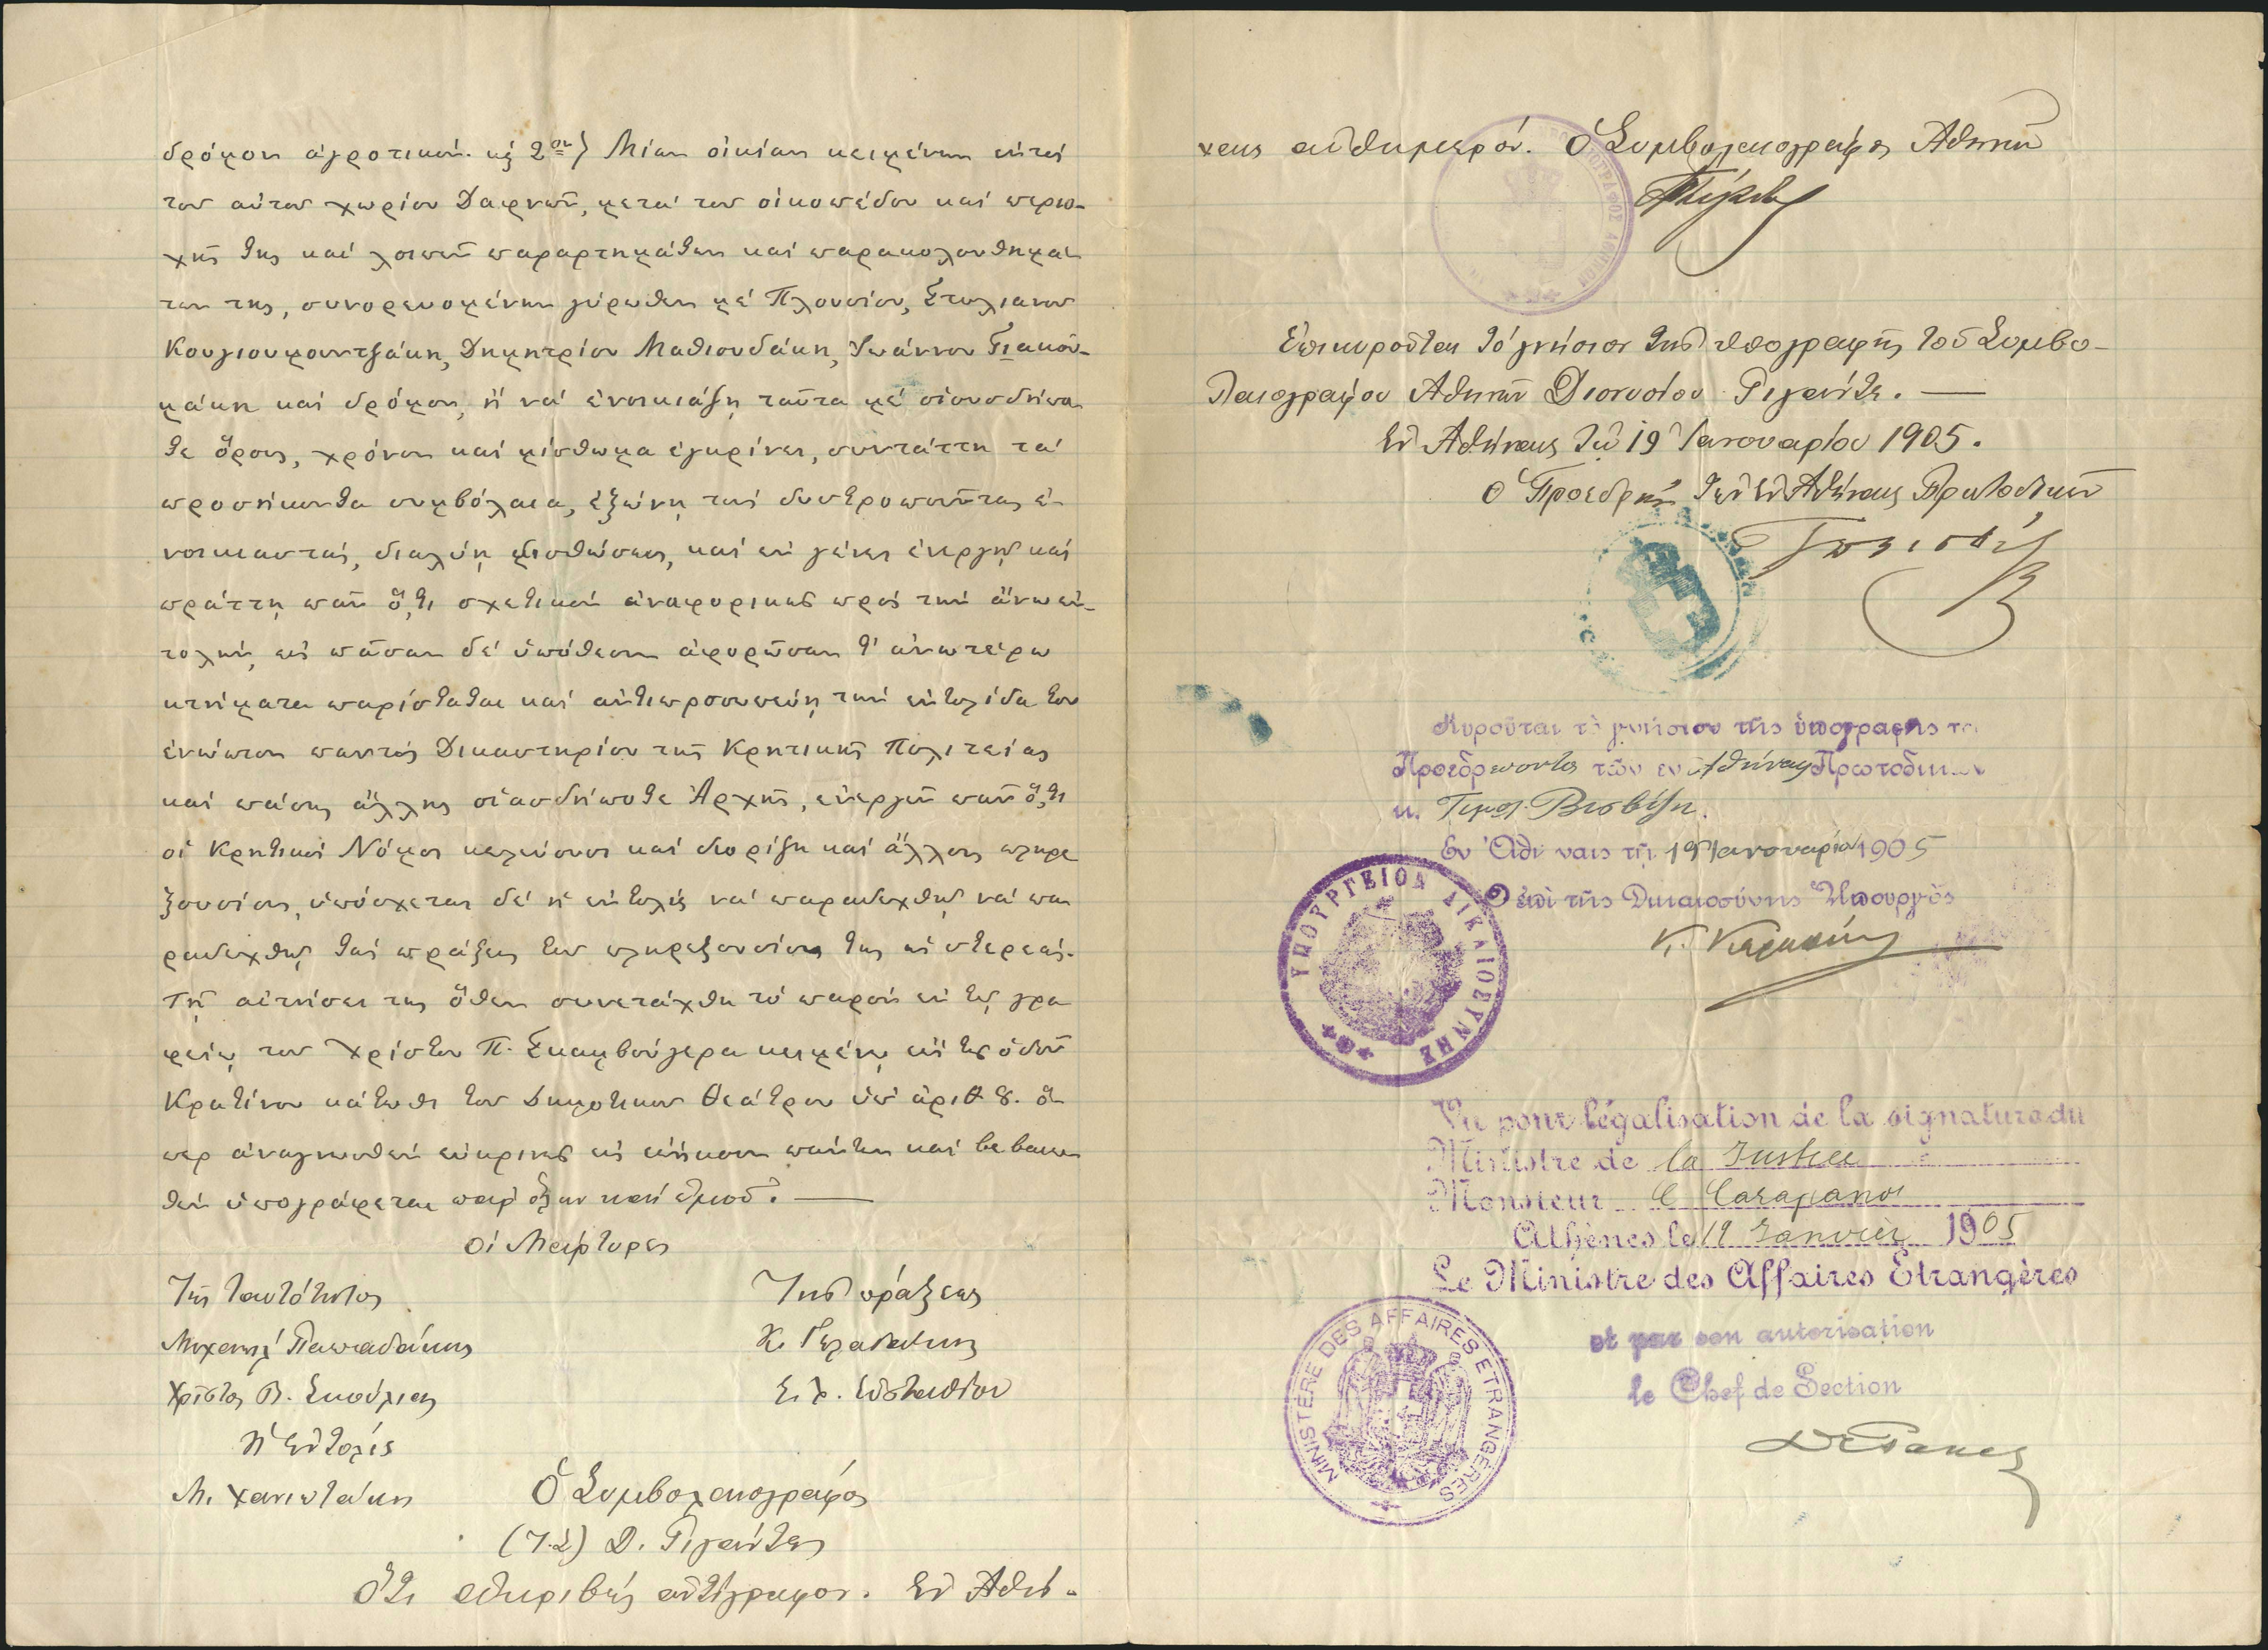 δρόμον ἀγροτικόν. κ 2ον) Μίαν οἰκίαν κειμένην ἐντός
τοῦ αὐτοῦ χωρίου Δαφνῶν, μετά τοῦ οἰκοπέδου καί περιο-
χῆς της καί λοιπῶν παραρτημάτων καί παρακολουθημά
των της, συνορευομένην γύρωθεν μέ Πλουσίου, Στυλιανοῦ
Κουγιουμουντζάκη, Δημητρίου Μαθιουδάκη, Ἰωάννου Γιακου-
μάκη καί δρόμον, ἤ νά ἐνοικιάζῃ ταῦτα μέ οἱουσδήπο
τε ὅρους, χρόνον καί μίσθωμα ἐγκρίνει, συντάττῃ τά
προσήκοντα συμβόλαια, ἐξώνῃ τούς δυστροποῦντας ἐ-
νοικιαστάς, διαλύῃ μισθώσεις, καί ἐν γένει ἐνεργῇ καί
πράττῃ πᾶν ὅ,τι σχετικόν ἀναφορικῶς πρός τήν ἄνω ἐν-
τολήν, εἰς πᾶσαν δέ ὑπόθεσιν ἀφορῶσαν τ' ἀνωτέρω
κτήματα παρίσταται καί ἀντιπροσωπεύῃ τήν ἐντολίδα του
ἐνώπιον παντός Δικαστηρίου τῆς Κρητικῆς Πολιτείας
καί πάσης ἄλλης οἱασδήποτε Ἀρχῆς, ἐνεργῶν πᾶν ὅ,τι
οἱ Κρητικοί Νόμοι κελεύουσι καί διορίζῃ καί ἄλλους πληρε
ξουσίους, ὑπόσχεται δέ ἡ ἐντολίς νά παραδεχθῇ νά πα
ραδεχθῇ τάς πράξεις τοῦ πληρεξουσίου της ὡς στερεάς.
Τῇ αἰτήσει της ὅθεν συνετάχθη τό παρόν ἐν τῷ γρα
φείῳ τοῦ Χρίστου Π. Σκαμβούγερα κειμένῳ ἐπί τῆς ὁδοῦ
Κρατίνου κάτωθι τοῦ Δημοτικοῦ Θεάτρου ὑπ' ἀριθ 8. ὅ-
περ ἀναγνωσθέν εὐκρινῶς εἰς ἐπήκοον πάντων καί βεβαιω
θέν ὑπογράφεται παρ' ὅλων καί ἐμοῦ. —
Οἱ Μάρτυρες
Τῆς ταυτότητος
Τῆς πράξεως
Μιχαήλ Παπαδάκης
Χρῖστος Β. Σκούλικας
Σ. Χ. Εὐσταθίου
Ἡ Ἐντολίς
Μ. Χανιωτάκη
Ὁ Συμβολαιογράφος
(Τ.Σ) Δ. Γιγάντες
Ὅτι ἀκριβές ἀντίγραφον. Ἐν Ἀθή-
ναις αὐθημερόν. Ὁ Συμβολαιογράφος Ἀθηνῶν
Ἐπικυροῦται τό γνήσιον τῆς ὑπογραφῆς τοῦ Συμβο-
λαιογράφου Ἀθηνῶν Διονυσίου Γιγάντε. —
Ἐν Ἀθήναις τῇ 19 Ἰανουαρίου 1905.
Ὁ Προεδρεύων τῶν ἐν Ἀθήναις Πρωτοδικῶν
Κυροῦται τὸ γνήσιον τῆς ὑπογραφῆς το
Προεδρεύοντος τῶν ἐν Ἀθήναις Πρωτοδικῶν
κ. Τιμολ. Βισβίζη.
Ἐν Ἀθήναις τῇ 19 Ἰανουαρίου 1905
Ὁ ἐπὶ τῆς Δικαιοσύνης Ὑπουργὸς
ΥΠΟΥΡΓΕΙΟΝ ΔΙΚΑΙΟΣΥΝΗΣ
Vu pour légalisation de la signature du
Ministre de la Justice
Monsieur C Carapanos
Athènes le 19 Janvier 1905
Le Ministre des Affaires Etrangères
et par son autorisation
le Chef de Section
MINISTÈRE DES AFFAIRES ETRANGÈRES